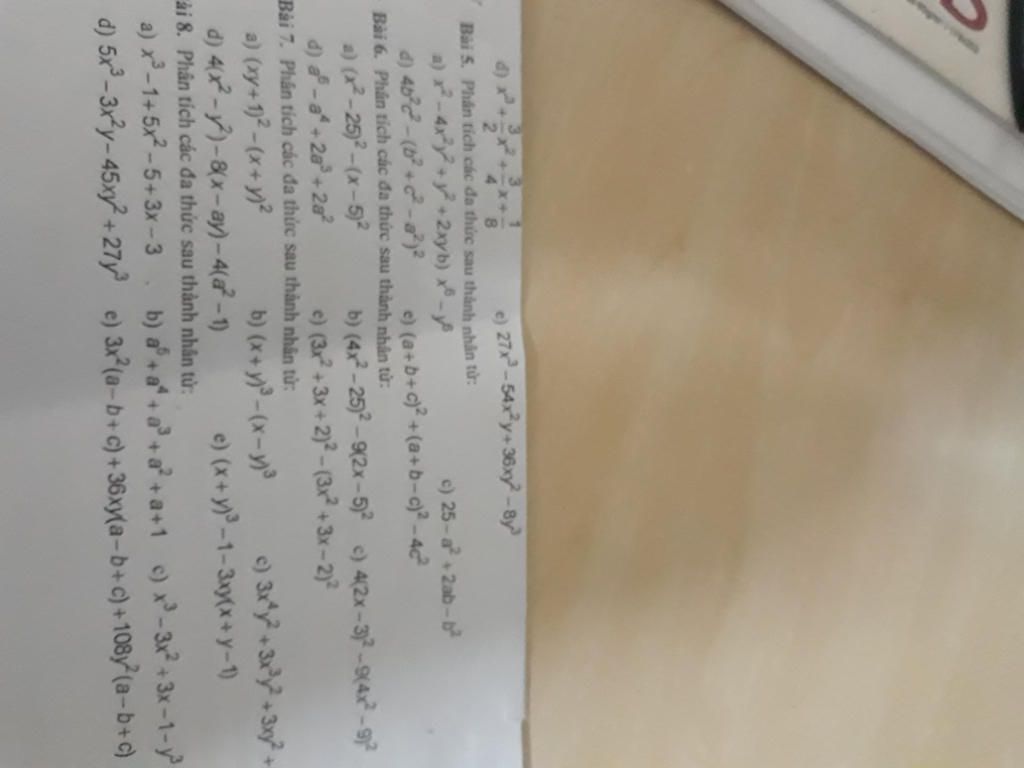 d) x³ + 3/2 x² + 3/4 x + 1/8 e) 27x³ - 54x²y + 36xy² - 8y³
Bài 5. Phân tích các đa thức sau thành nhân tử:
a) x² - 4x²y² + y² + 2xy b) x⁶ - y⁶ c) 25 - a² + 2ab - b²
d) 4b²c² - (b² + c² - a²)² e) (a + b + c)² + (a + b - c)² - 4c²
Bài 6. Phân tích các đa thức sau thành nhân tử:
a) (x² - 25)² - (x - 5)² b) (4x² - 25)² - 9(2x - 5)² c) 4(2x - 3)² - 9(4x² - 9)²
d) a⁶ - a⁴ + 2a³ + 2a² e) (3x² + 3x + 2)² - (3x² + 3x - 2)²
Bài 7. Phân tích các đa thức sau thành nhân tử:
a) (xy + 1)² - (x + y)² b) (x + y)³ - (x - y)³ c) 3x⁴y² + 3x³y² + 3xy² +
d) 4(x² - y²) - 8(x - ay) - 4(a² - 1) e) (x + y)³ - 1 - 3xy(x + y - 1)
ài 8. Phân tích các đa thức sau thành nhân tử:
a) x³ - 1 + 5x² - 5 + 3x - 3 b) a⁵ + a⁴ + a³ + a² + a + 1 c) x³ - 3x² + 3x - 1 - y³
d) 5x³ - 3x²y - 45xy² + 27y³ e) 3x²(a - b + c) + 36xy(a - b + c) + 108y²(a - b + c)